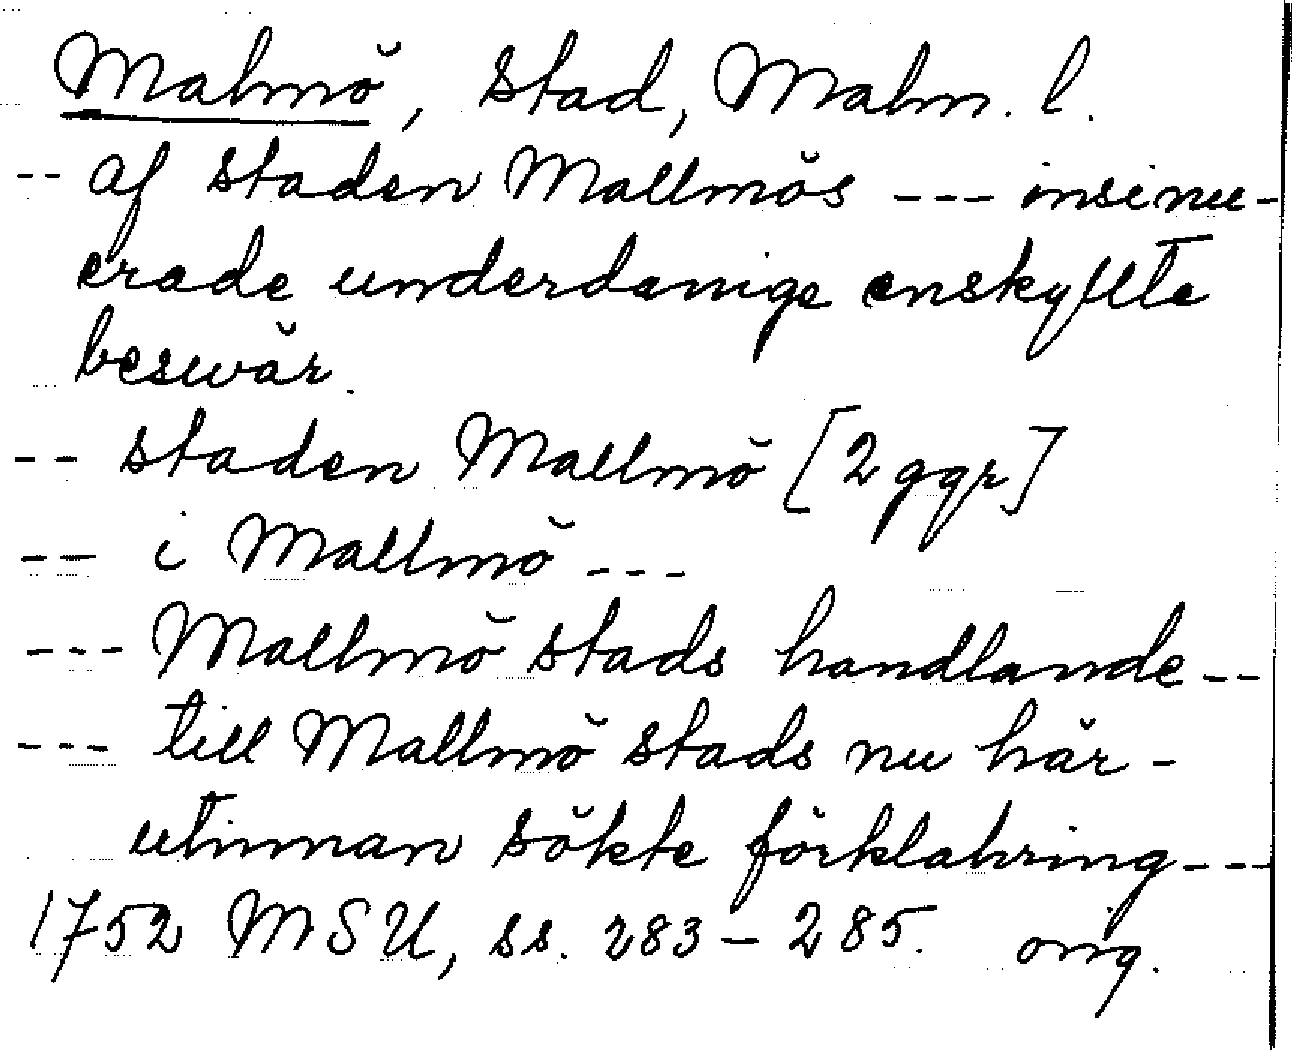 Malmö, stad, Malm. l.
-- af staden Mallmös --- insinu-
erade underdanige enskyllte
beswär.
-- staden Mallmö [2 ggr]
-- i Mallmö ---
--- Mallmö stads handlande --
--- till Mallmö stads nu här-
utinnan sökte förklahring ---
1752 MSU, ss. 283-285. orig.